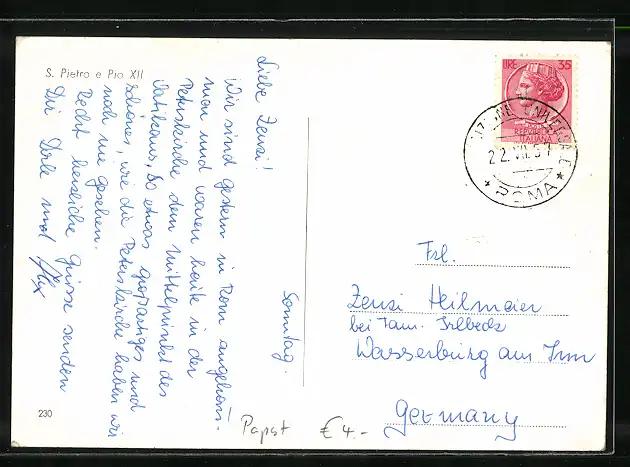 S. Pietro e Pio XII
Sonntag.
Liebe Zensi!
Wir sind gestern in Rom angekom-
men und waren heute in der
Peterskirche dem Mittelpunkt des
Vatikans. So etwas großartiges und
schönes, wie die Peterskirche haben wir
noch nie gesehen.
Recht herzliche Grüsse senden
Dir und
230
LIRE 35
REPUBBLICA
ITALIANA
22.VII.57
* ROMA *
Frl.
Zensi Heilmeier
bei Fam. Irlbeck
Wasserburg am Inn
Germany
Papst € 4.-